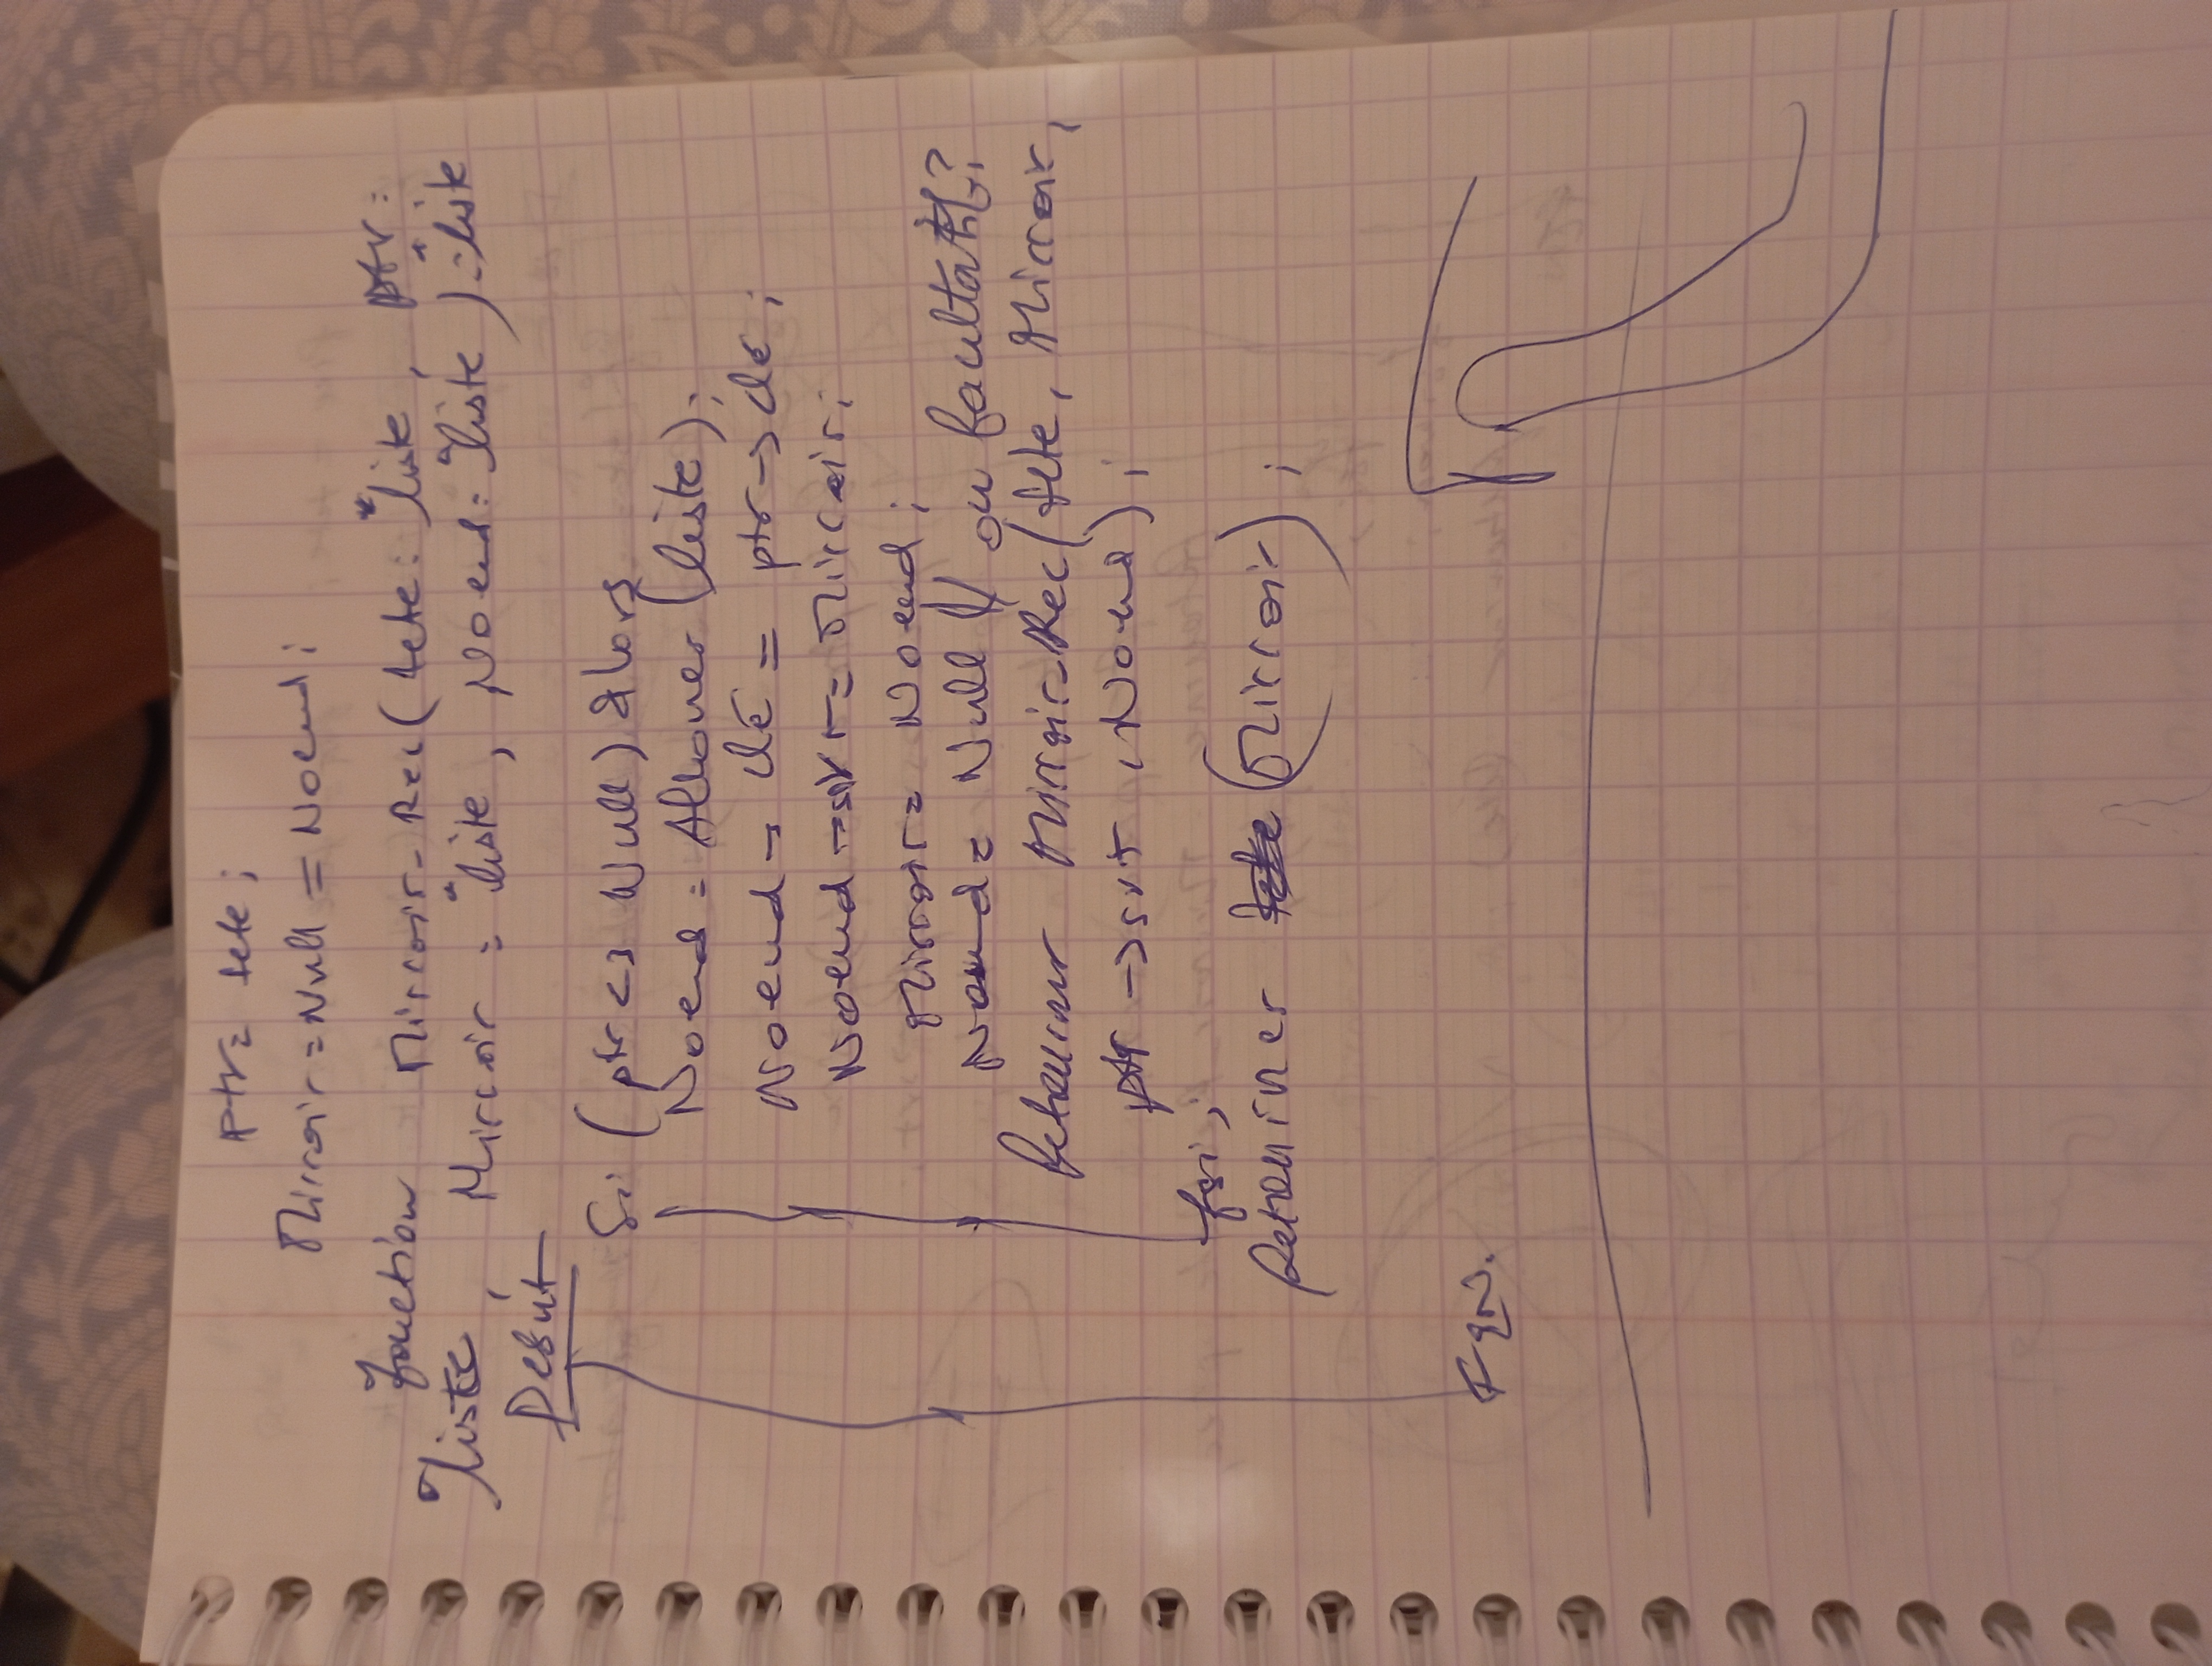 ptr = tete ;
Mircoir = Null = Noeud ;
fonction Mircoir-Rec ( tete : * liste , ptr :
* liste , Mircoir : * liste , Noeud : * liste ) : * liste
Debut
Si ( ptr <> Null ) alors
Noeud = Allouer ( liste ) ;
Noeud -> clé = ptr -> clé ;
Noeud -> svt = Mircoir ;
Mircoir = Noeud ;
Noeud = Null // ou facultatif ?
Retourner Mircoir-Rec ( tete , Mircoir ,
ptr -> svt , Noeud ) ;
fsi ;
Retourner ( Mircoir ) ;
FIN .